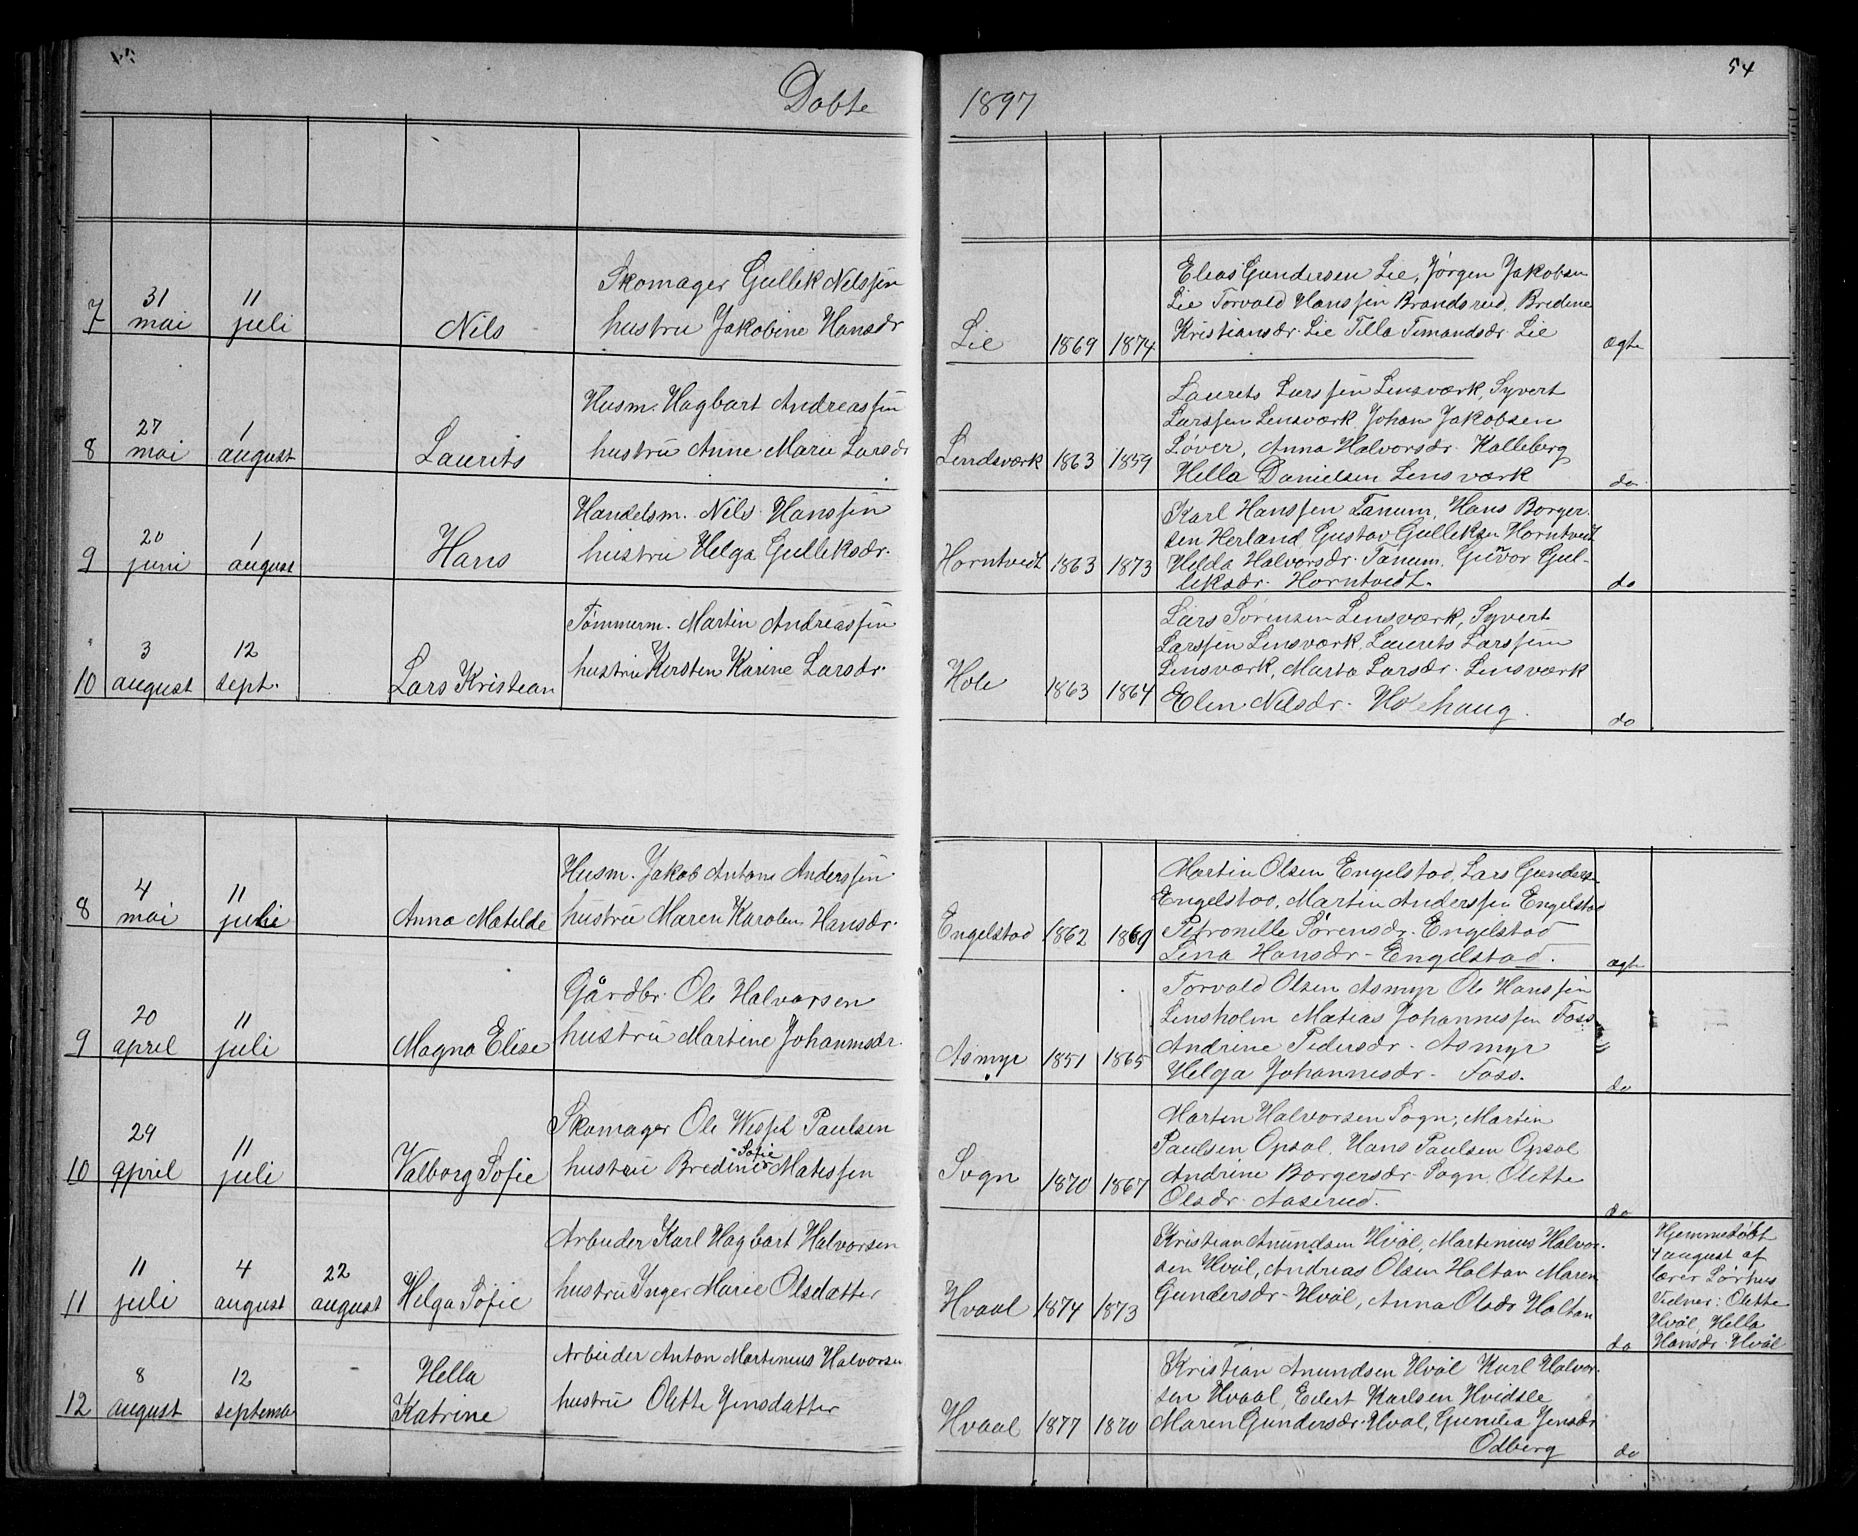 Døbte 1897
54
7
31 mai
11 juli
Nils
Skomager Gullek Nilssen
hustru Jakobine Hansdr
Lie
1869
1874
Elias Gundersen Lie, Jørgen Jakobsen
Lie Torvald Hanssen Brandsrud, Bredine
Kristiansdr. Lie Tilla Timandsdr. Lie
ægte
8
27 mai
1 august
Laurits
Husm. Hagbart Andreassen
hustru Anne Marie Larsdr
Lendsværk
1863
1859
Laurits Larssen Lensværk, Syvert
Larssen Lensværk Johan Jakobsen
Løver, Anna Halvorsdr. Kalleberg
Hella Danielsen Lensværk
do.
9
20 juni
1 august
Hans
Handelsm. Nils Hanssen
hustru Helga Gulleksdr.
Horntvedt
1863
1873
Karl Hanssen Tanum, Hans Borger-
sen Herland Gustav Gulleksen Horntvedt
Helda Halvorsdr. Tanum, Gunvor Gul-
leksdr. Horntvedt.
do
10
3 august
12 sept.
Lars Kristian
Tømmerm. Martin Andreassen
hustru Kirsten Karine Larsdr.
Hole
1863
1864
Lars Sørensen Lensværk, Syvert
Larssen Lensværk, Laurits Larssen
Lensværk, Marta Larsdr. Lensværk
Elen Nilsdr. Holehaug.
do
8
4 mai
11 juli
Anna Matilde
Husm. Jakob Antone Anderssen
hustru Maren Karolen Hansdr.
Engelstad
1862
1869
Martin Olsen Engelstad, Lars Gundersen
Engelstad, Martin Anderssen Engelstad
Petronille Sørensdr. Engelstad
Lina Hansdr. Engelstad.
ægte
9
20 april
11 juli
Magna Elise
Gårdbr. Ole Halvorsen
hustru Martine Johannsdr.
Asmyr
1851
1865
Torvald Olsen Asmyr Ole Hanssen
Lensholm Matias Johannessen Foss
Andrine Pedersdr. Asmyr
Helga Johannesdr. Foss.
do
10
29 april
11 juli
Valborg Sofie
Skomager Ole Wessel Paulsen
hustru Bredine Sofie Matissen
Sogn
1870
1867
Martin Halvorsen Sogn, Martin
Paulsen Opsal, Hans Paulsen Opsal
Andrine Borgersdr. Sogn, Olette
Olsdr. Aaserud.
do
11
11 juli
4 august
22 august
Helga Sofie
Arbeider Karl Hagbart Halvorsen
hustru Inger Marie Olsdatter
Hvaal
1874
1873
Kristian Anundsen Hvål, Martinius Halvor-
sen Hvål, Andreas Olsen Holtan Maren
Gundersdr. Hvål, Anna Olsdr Holtan
do
Hjemmedøbt
4 august af
lærer Sørhus
Vidner: Olette
Hvål, Hella
Hansdr. Hvål
12
8 august
12 septembr
Hella
Katrine
Arbeider Anton Martinius Halvorsen
hustru Olette Jensdatter
Hvaal
1877
1870
Kristian Anundsen Hvål Karl Halvor-
sen Hvaal, Edert Karlsen Hvidsle
Maren Gundersdr. Hvål, Gunilia Jensdr
Odberg
do